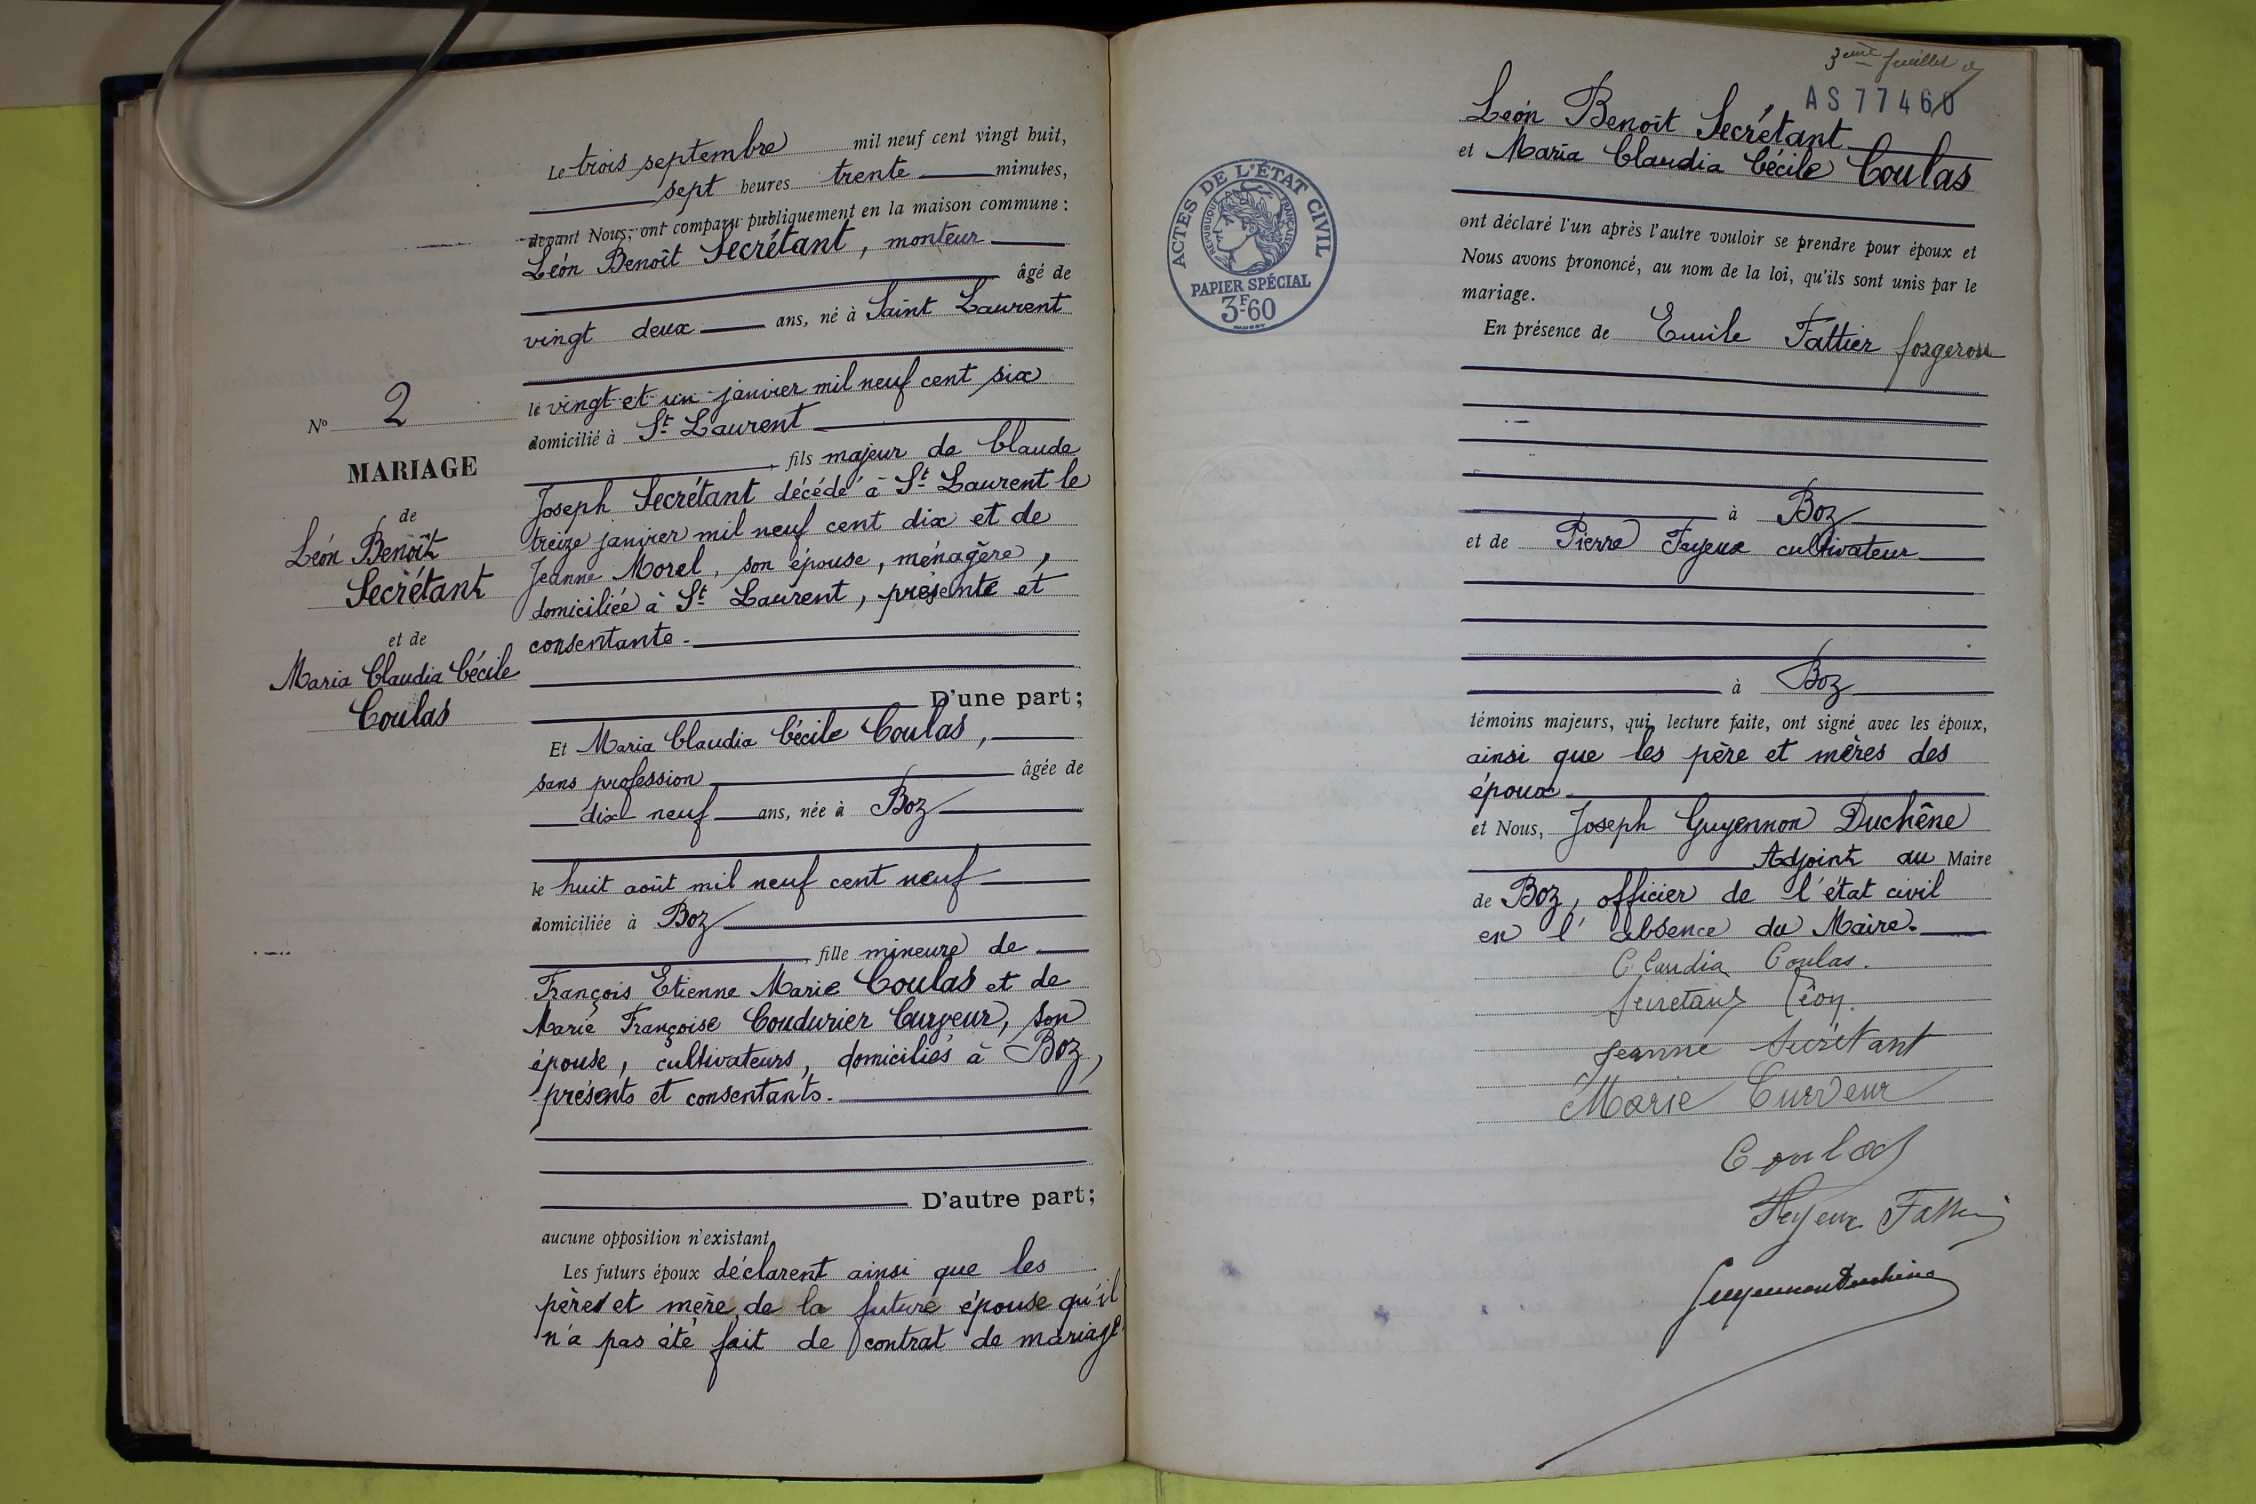 N° 2
MARIAGE
de
Léon Benoît
Secrétant
et de
Maria Claudia Cécile
Coulas
Le trois septembre mil neuf cent vingt huit,
sept heures trente minutes,
devant Nous, ont comparu publiquement en la maison commune :
Léon Benoît Secrétant, monteur
âgé de
vingt deux ans, né à Saint Laurent
le vingt et un janvier mil neuf cent six
domicilié à St Laurent
, fils majeur de Claude
Joseph Secrétant décédé à St Laurent le
treize janvier mil neuf cent dix et de
Jeanne Morel, son épouse, ménagère,
domiciliée à St Laurent, présente et
consentante.
D'une part;
Et Maria Claudia Cécile Coulas,
sans profession âgée de
dix neuf ans, née à Boz
le huit août mil neuf cent neuf
domiciliée à Boz
, fille mineure de
François Etienne Marie Coulas et de
Marie Françoise Coudurier Curveur, son
épouse, cultivateurs, domiciliés à Boz,
présents et consentants.
D'autre part;
aucune opposition n'existant
Les futurs époux déclarent ainsi que les
père et mère de la future épouse qu'il
n'a pas été fait de contrat de mariage.
3eme feuillet
AS 77460
Léon Benoît Secrétant
et Maria Claudia Cécile Coulas
ont déclaré l'un après l'autre vouloir se prendre pour époux et
Nous avons prononcé, au nom de la loi, qu'ils sont unis par le
mariage.
En présence de Emile Fattier forgeron
à Boz
et de Pierre Feyeux cultivateur
à Boz
témoins majeurs, qui, lecture faite, ont signé avec les époux,
ainsi que les père et mères des
époux.
et Nous, Joseph Guyennon Duchêne
Adjoint au Maire
de Boz, officier de l'état civil
en l'absence du Maire.
Claudia Coulas.
Secretant Léon.
Jeanne Secrétant
Marie Curveur
Coulas
Feyeux Fattier
Guyennon Duchêne
ACTES DE L'ÉTAT CIVIL
RÉPUBLIQUE FRANÇAISE
PAPIER SPÉCIAL
3F60